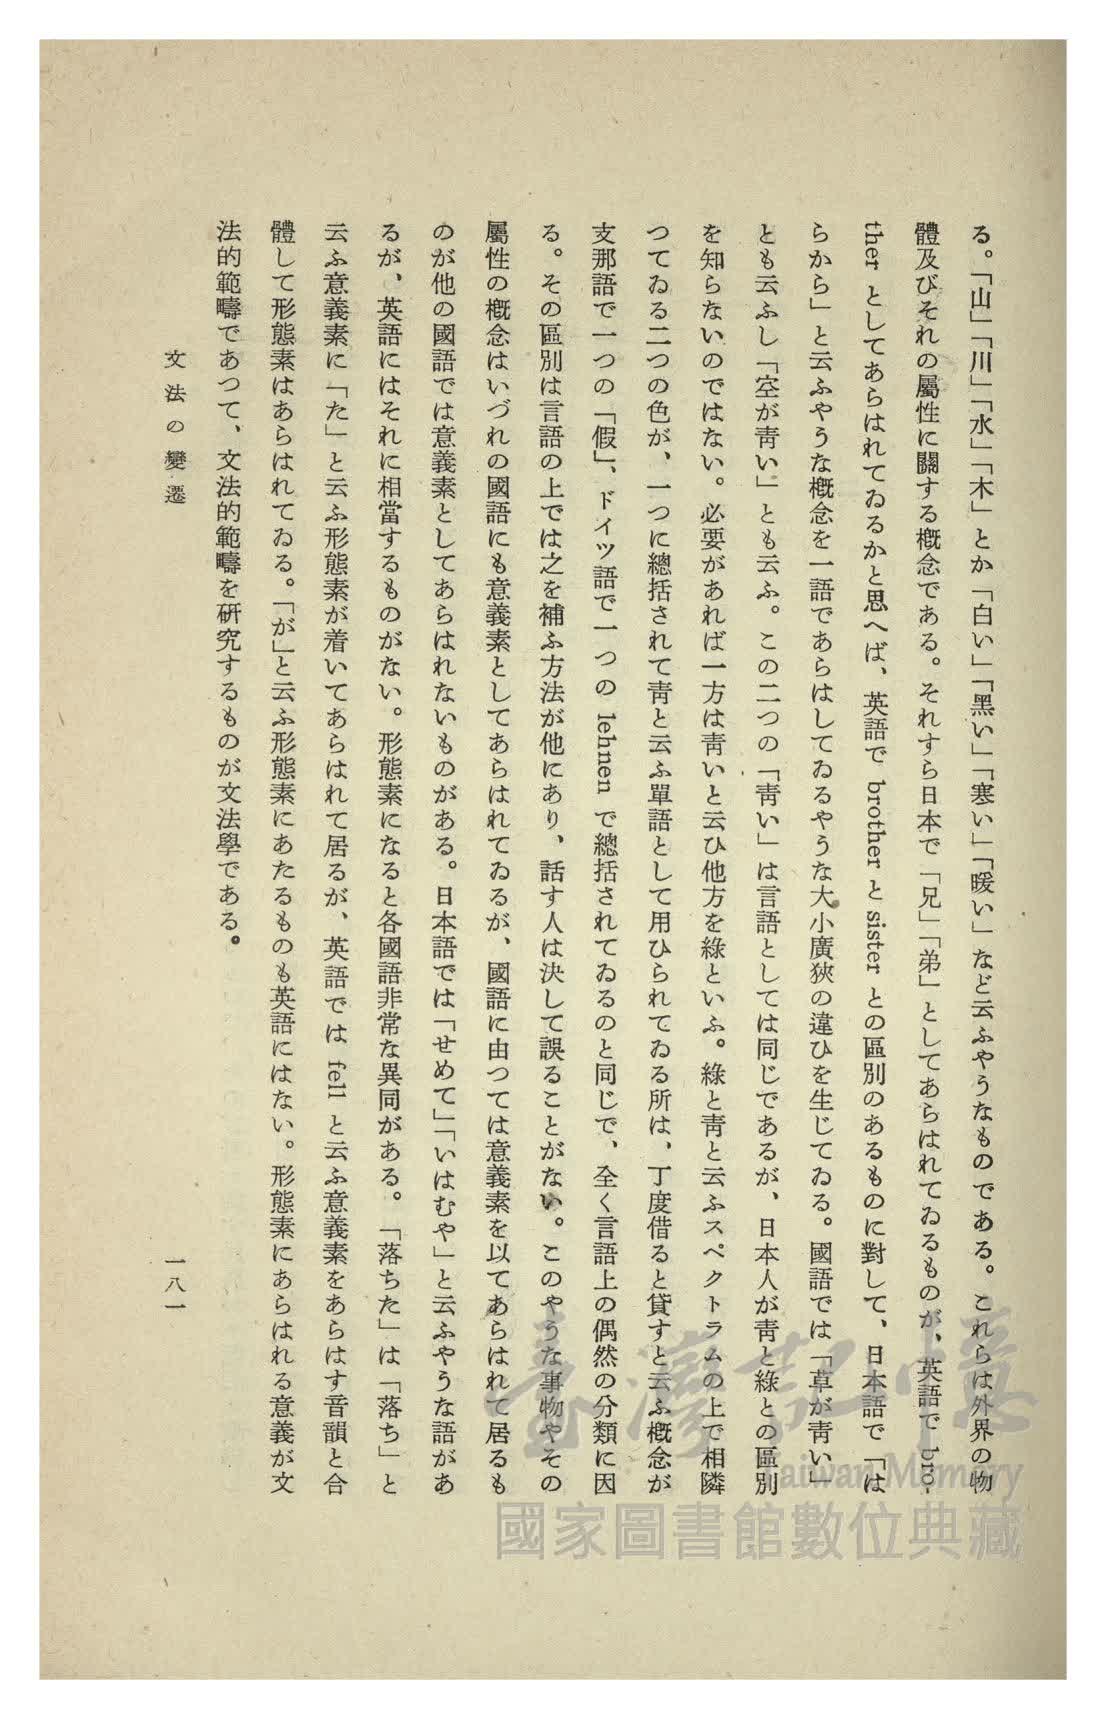 る。「山」「川」「水」「木」とか「白い」「黑い」「寒い」「暖い」など云ふやうなものである。これらは外界の物
體及びそれの屬性に關する概念である。それすら日本で「兄」「弟」としてあらはれてゐるものが、英語で bro-
ther としてあらはれてゐるかと思へば、英語で brother と sister との區別のあるものに對して、日本語で「は
らから」と云ふやうな概念を一語であらはしてゐるやうな大小廣狹の違ひを生じてゐる。國語では「草が靑い」
とも云ふし「空が靑い」とも云ふ。この二つの「靑い」は言語としては同じであるが、日本人が靑と綠との區別
を知らないのではない。必要があれば一方は靑いと云ひ他方を綠といふ。綠と靑と云ふスペクトラムの上で相隣
つてゐる二つの色が、一つに總括されて靑と云ふ單語として用ひられてゐる所は、丁度借ると貸すと云ふ概念が
支那語で一つの「假」、ドイツ語で一つの lehnen で總括されてゐるのと同じで、全く言語上の偶然の分類に因
る。その區別は言語の上では之を補ふ方法が他にあり、話す人は決して誤ることがない。このやうな事物やその
屬性の概念はいづれの國語にも意義素としてあらはれてゐるが、國語に由つては意義素を以てあらはれて居るも
のが他の國語では意義素としてあらはれないものがある。日本語では「せめて」「いはむや」と云ふやうな語があ
るが、英語にはそれに相當するものがない。形態素になると各國語非常な異同がある。「落ちた」は「落ち」と
云ふ意義素に「た」と云ふ形態素が着いてあらはれて居るが、英語では fell と云ふ意義素をあらはす音韻と合
體して形態素はあらはれてゐる。「が」と云ふ形態素にあたるものも英語にはない。形態素にあらはれる意義が文
法的範疇であつて、文法的範疇を硏究するものが文法學である。
文法の變遷
一八一
臺灣記憶
Taiwan Memory
國家圖書館數位典藏